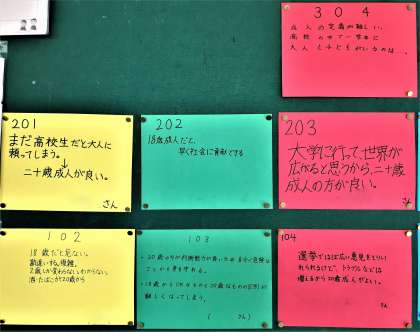 304
成人の定義が難しい。
高校の中で一学年に
大人と子どもがいるのは…。
201
まだ高校生だと大人に
頼ってしまう。
↓
二十歳成人が良い。
さん
202
18歳成人だと、
早く社会に貢献できる
203
大学に行って、世界が
広がると思うから、二十歳
成人の方が良い。
102
18歳だと危ない。
勘違いする。複雑。
2歳しか変わらないしわからない。
酒・たばこが20歳から
103
・20歳の方が判断能力が高いため
ことから身を守れる。
・18歳から
難しくなってしまう。
( さん)
104
選挙では広い意見をとりい
れられるけど、トラブルなどは
増えるから20歳成人がよい。
さん